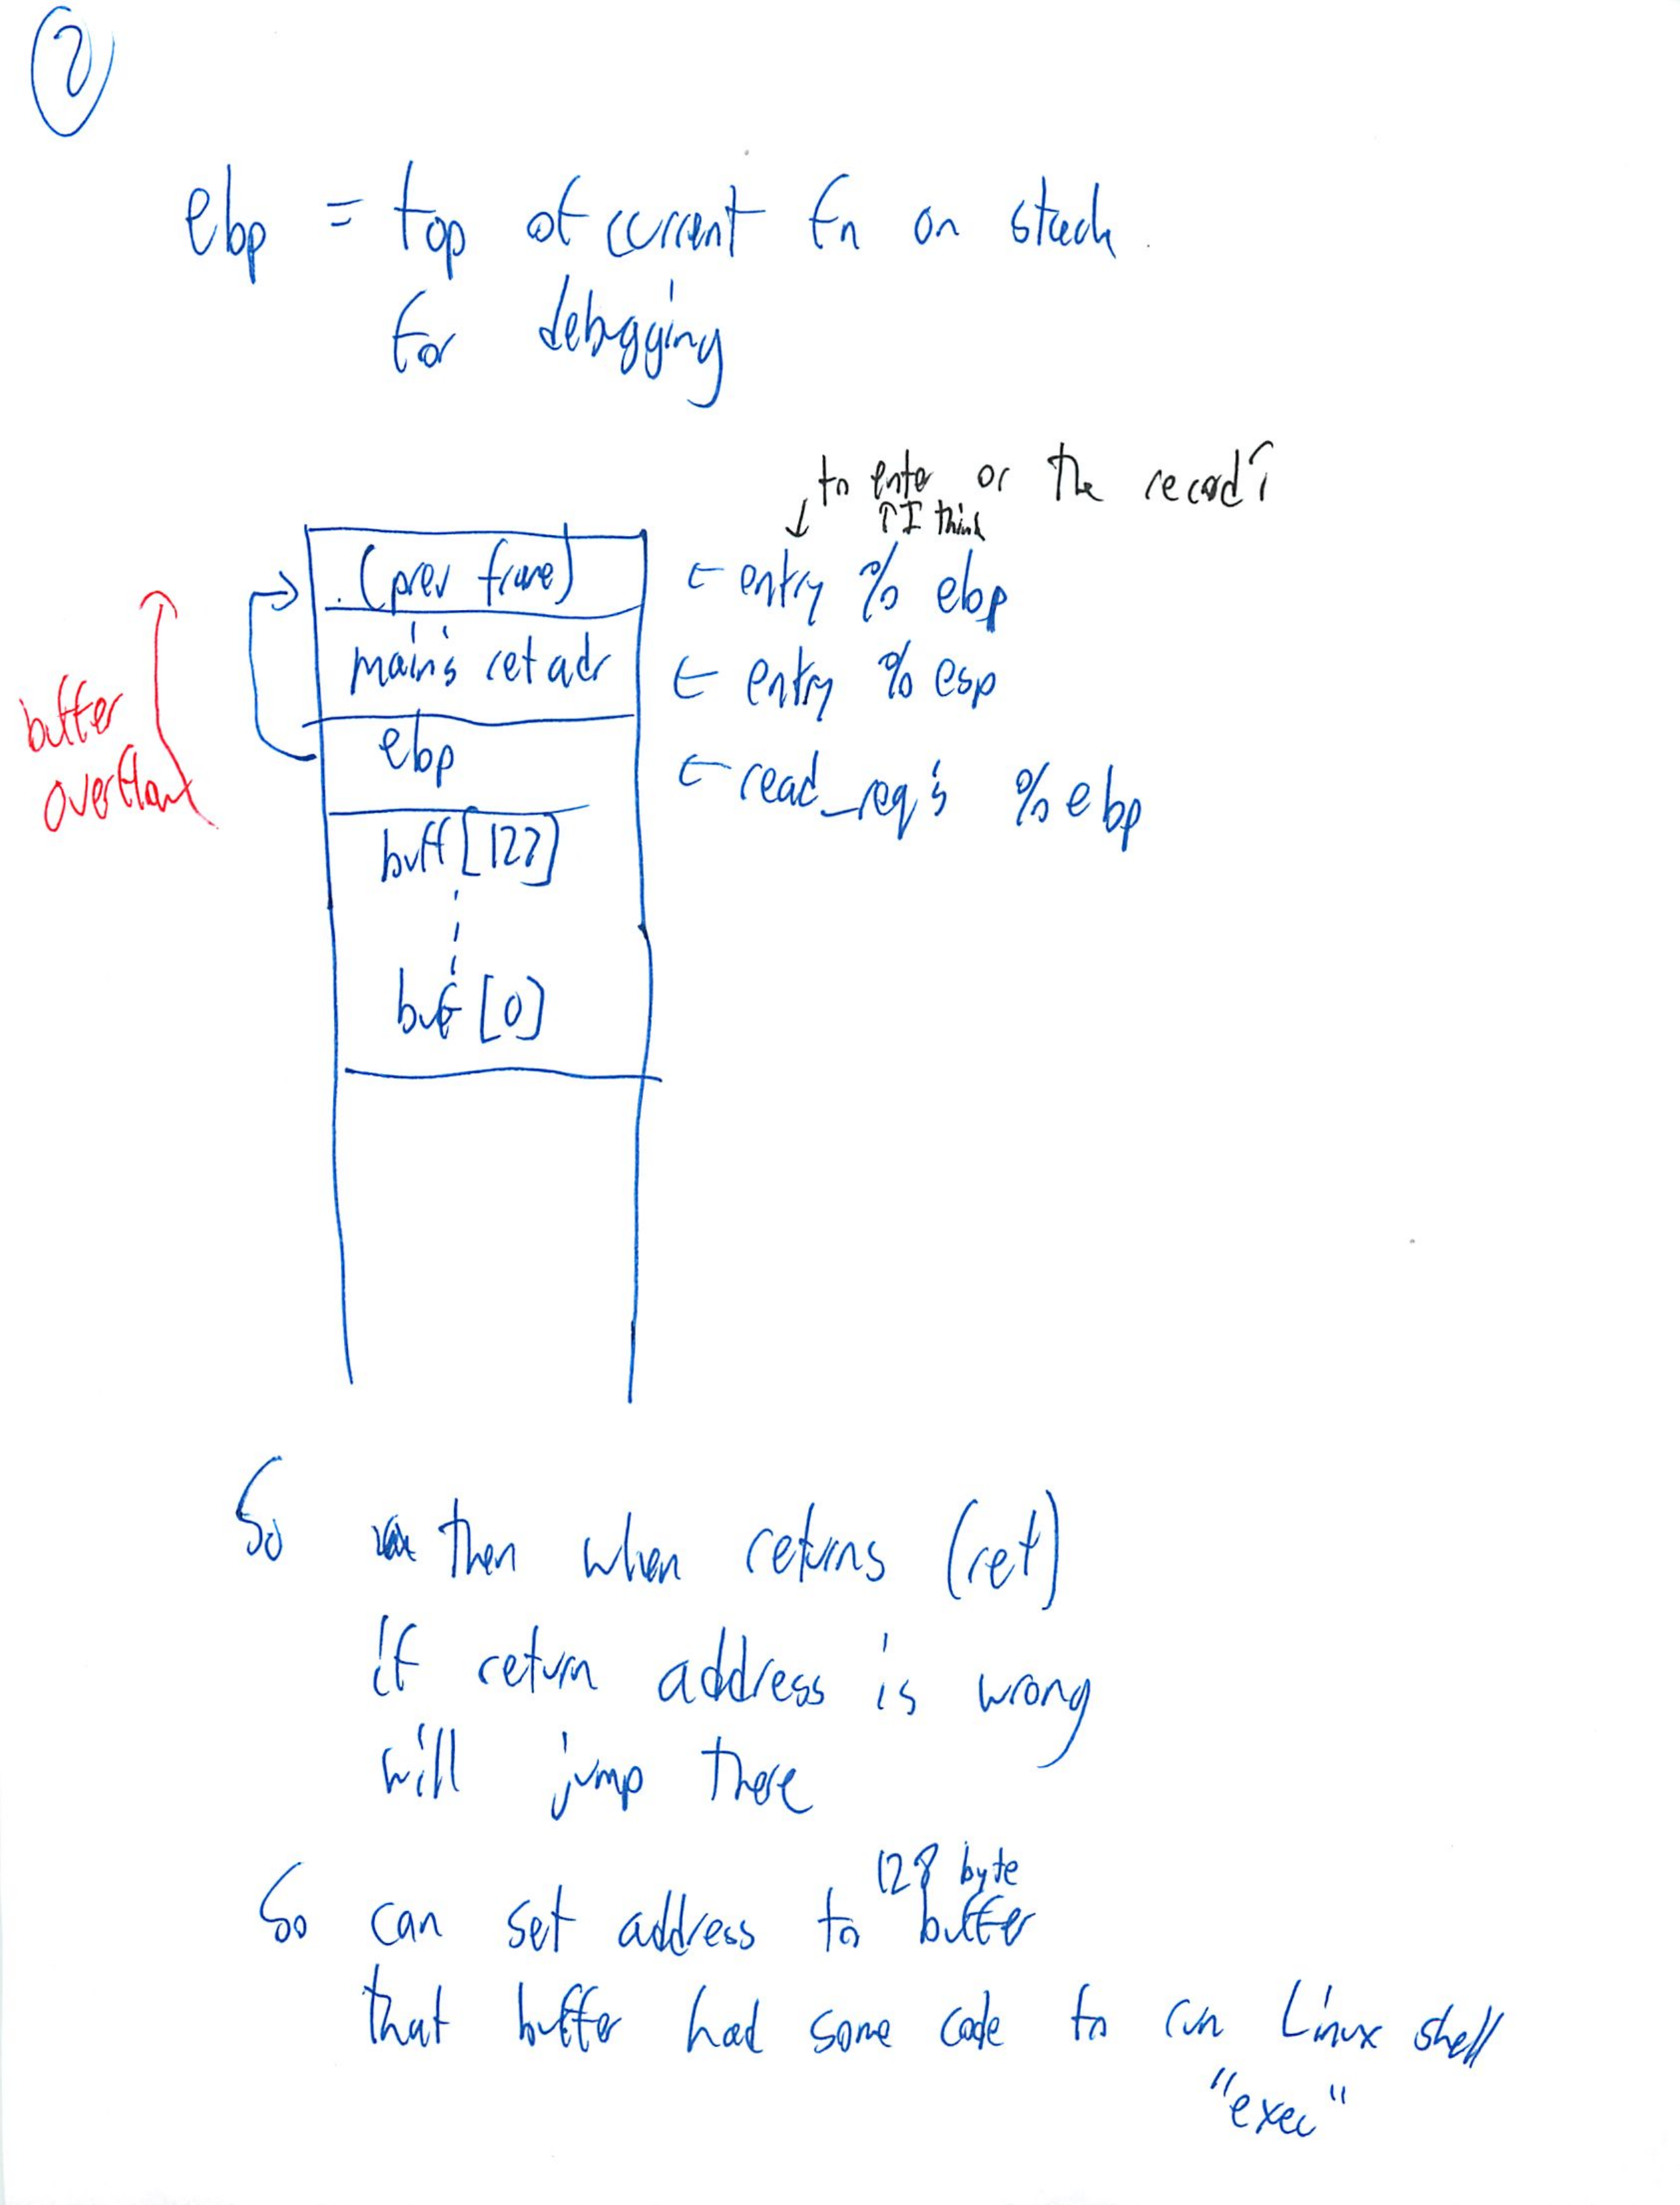 2
ebp = top of current fn on stack.
for debugging
to enter or the record?
↑ I think
(prev frame) ← entry % ebp
main's ret adr ← entry % esp
ebp ← read_req's % ebp
buffer
overflow
buff [127]
buf [0]
So then when returns (ret)
if return address is wrong
will jump there
128 byte
So can set address to buffer
that buffer had some code to run Linux shell
"exec"